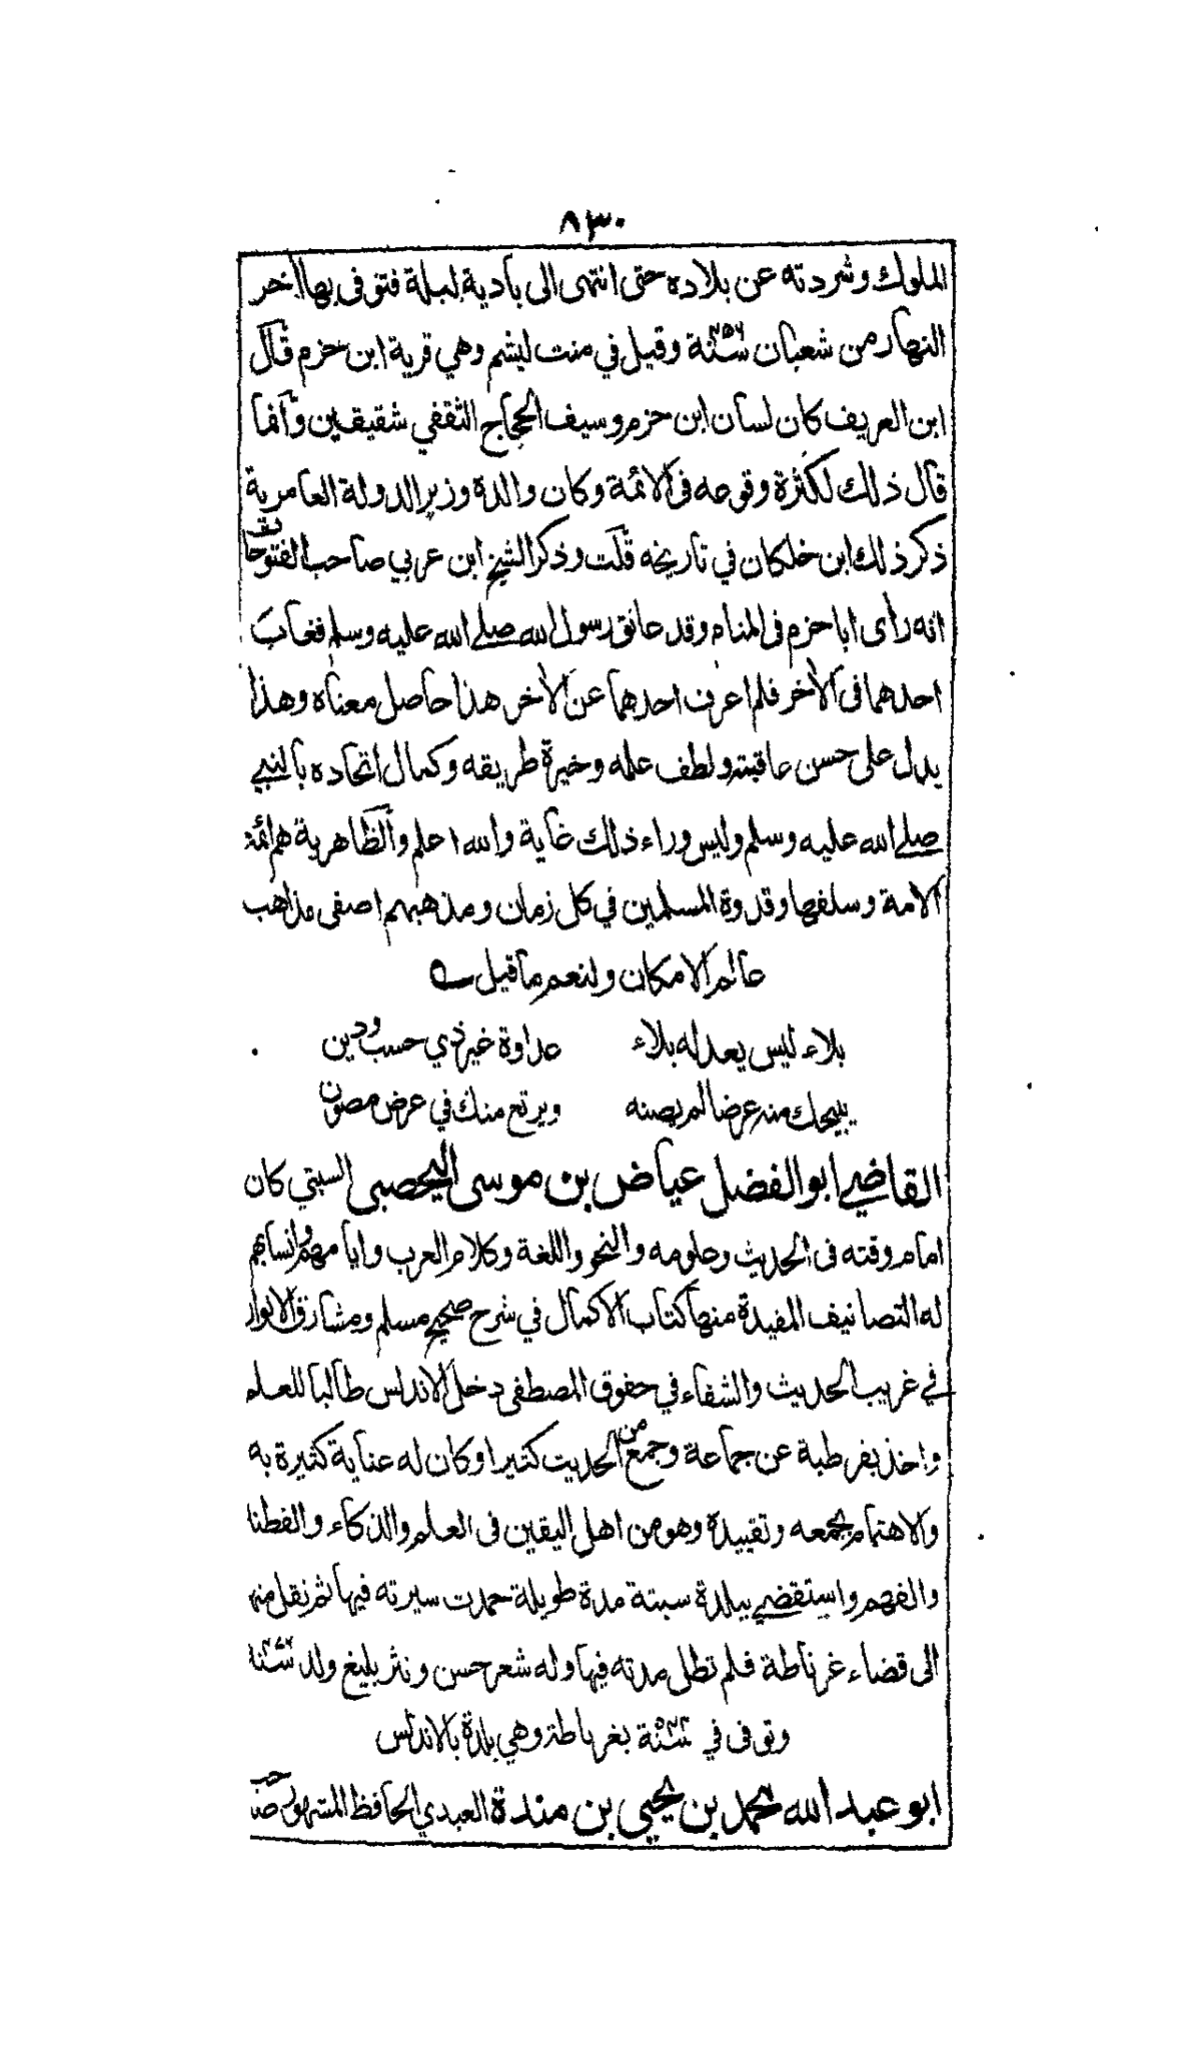 ٨٣٠
الملوك وشردته عن بلاده حتى انتهى الى بادية لبلة فتوفى بها اخر
النهار من شعبان سنة ٤٥٦ وقيل في منت ليشم وهي قرية ابن حزم قال
ابن العريف كان لسان ابن حزم وسيف الحجاج الثقفي شقيقين وانما
قال ذلك لكثرة وقوعه فى الائمة وكان والدة وزير الدولة العامرية
ذكر ذلك ابن خلكان في تاريخه قلت وذكر الشيخ ابن عربي صاحب الفتوحات
انه رأى ابا حزم فى المنام وقد عانق رسول الله صلے الله عليه وسلم فغاب
احدهما فى الاخر فلم اعرف احدهما عن الاخر هذا حاصل معناه وهذا
يدل على حسن عاقبته ولطف علمه وخيرة طريقه وكمال اتحاده بالنبي
صلے الله عليه وسلم وليس وراء ذلك غاية والله اعلم والظاهرية هم ائمة
الامة وسلفها وقدوة المسلمين في كل زمان ومذهبهم اصفى مذاهب
عالم الامكان ولنعم ما قيل ؎
بلاء ليس يعدله بلاء عداوة غير ذي حسب ودين
يبيحك منه عرضا لم يصنه ويرتع منك في عرض مصون
القاضي ابو الفضل عياض بن موسى اليحصبى السبتي كان
امام وقته فى الحديث وعلومه والنحو واللغة وكلام العرب وايامهم وانسابهم
له التصانيف المفيدة منها كتاب الاكمال في شرح صحيح مسلم ومشارق الانوار
في غريب الحديث والشفاء في حقوق المصطفى دخل الاندلس طالبا للعلم
واخذ بقرطبة عن جماعة وجمع من الحديث كثيرا وكان له عناية كثيرة به
والاهتمام بجمعه وتقييدة وهو من اهل اليقين فى العلم والذكاء والفطنة
والفهم واستقضي ببلدة سبتة مدة طويلة حمدت سيرته فيها ثم نقل منها
الى قضاء غرناطة فلم تطل مدته فيها وله شعر حسن ونثر بليغ ولد سنة
وتوفى في سنة بغرناطة وهي بلدة بالاندلس
ابو عبد الله محمد بن يحيى بن مندة العبدي الحافظ المشهور صاحب